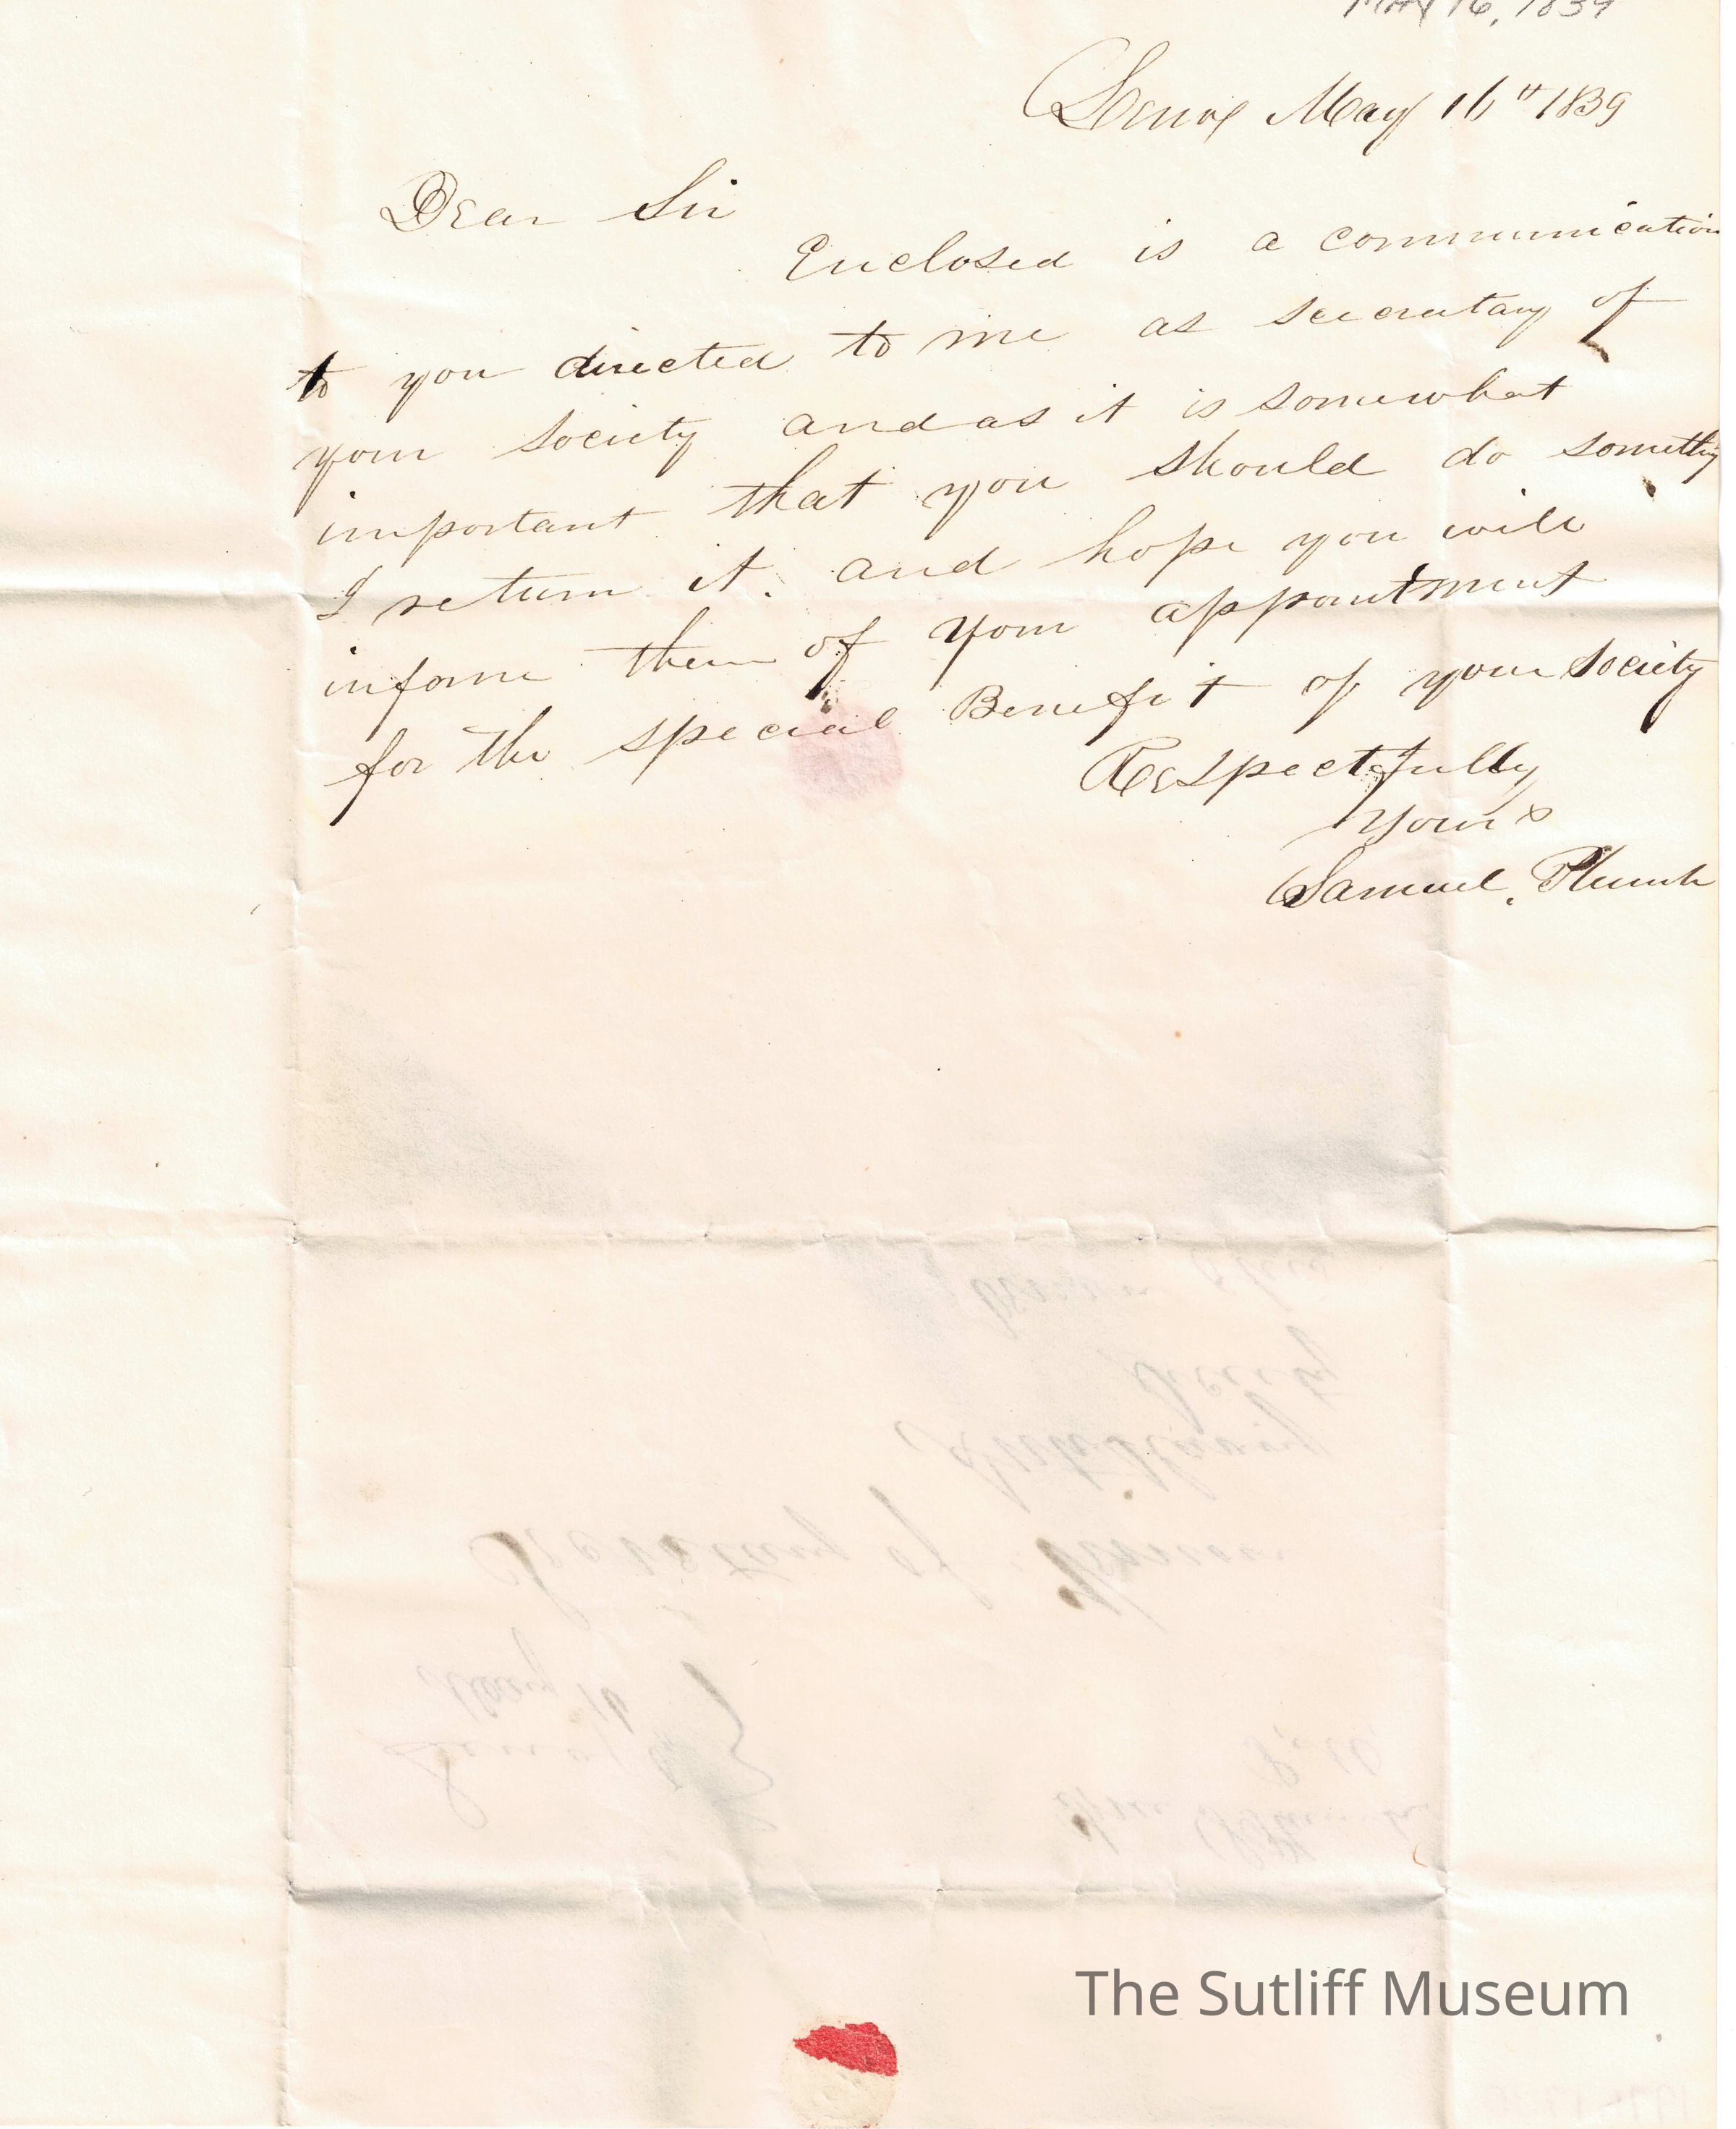 MAY 16, 1839
Lenox May 16th 1839
Dear Sir
Enclosed is a communication
to you directed to me as secretary of
your society and as it is somewhat
important that you should do something
I return it. and hope you will
inform them of your appointment
for the special Benefit of your society
Respectfully
Yours
Samuel. Plumb
Vernon Ohio
Society
AntiSlavery
Secretary of Vernon
May 16
Lenox O
The Sutliff Museum